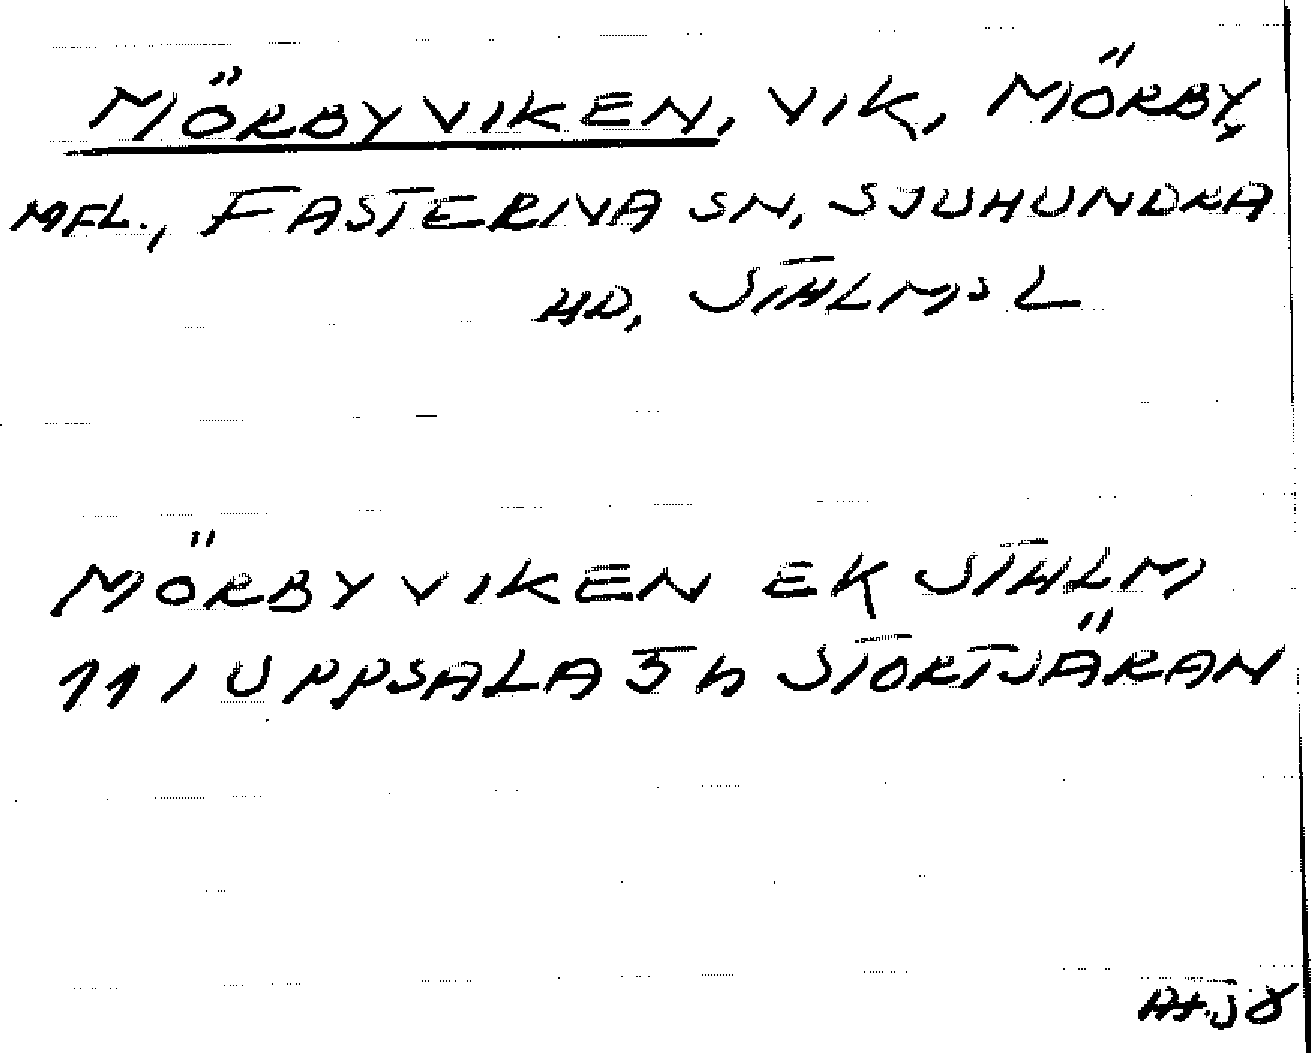 MÖRBYVIKEN, VIK, MÖRBY,
MFL., FASTERNA SN, SJUHUNDRA
HD, STHLMS L
MÖRBYVIKEN EK STHLM
11 I UPPSALA 5 h STORTJÄRAN